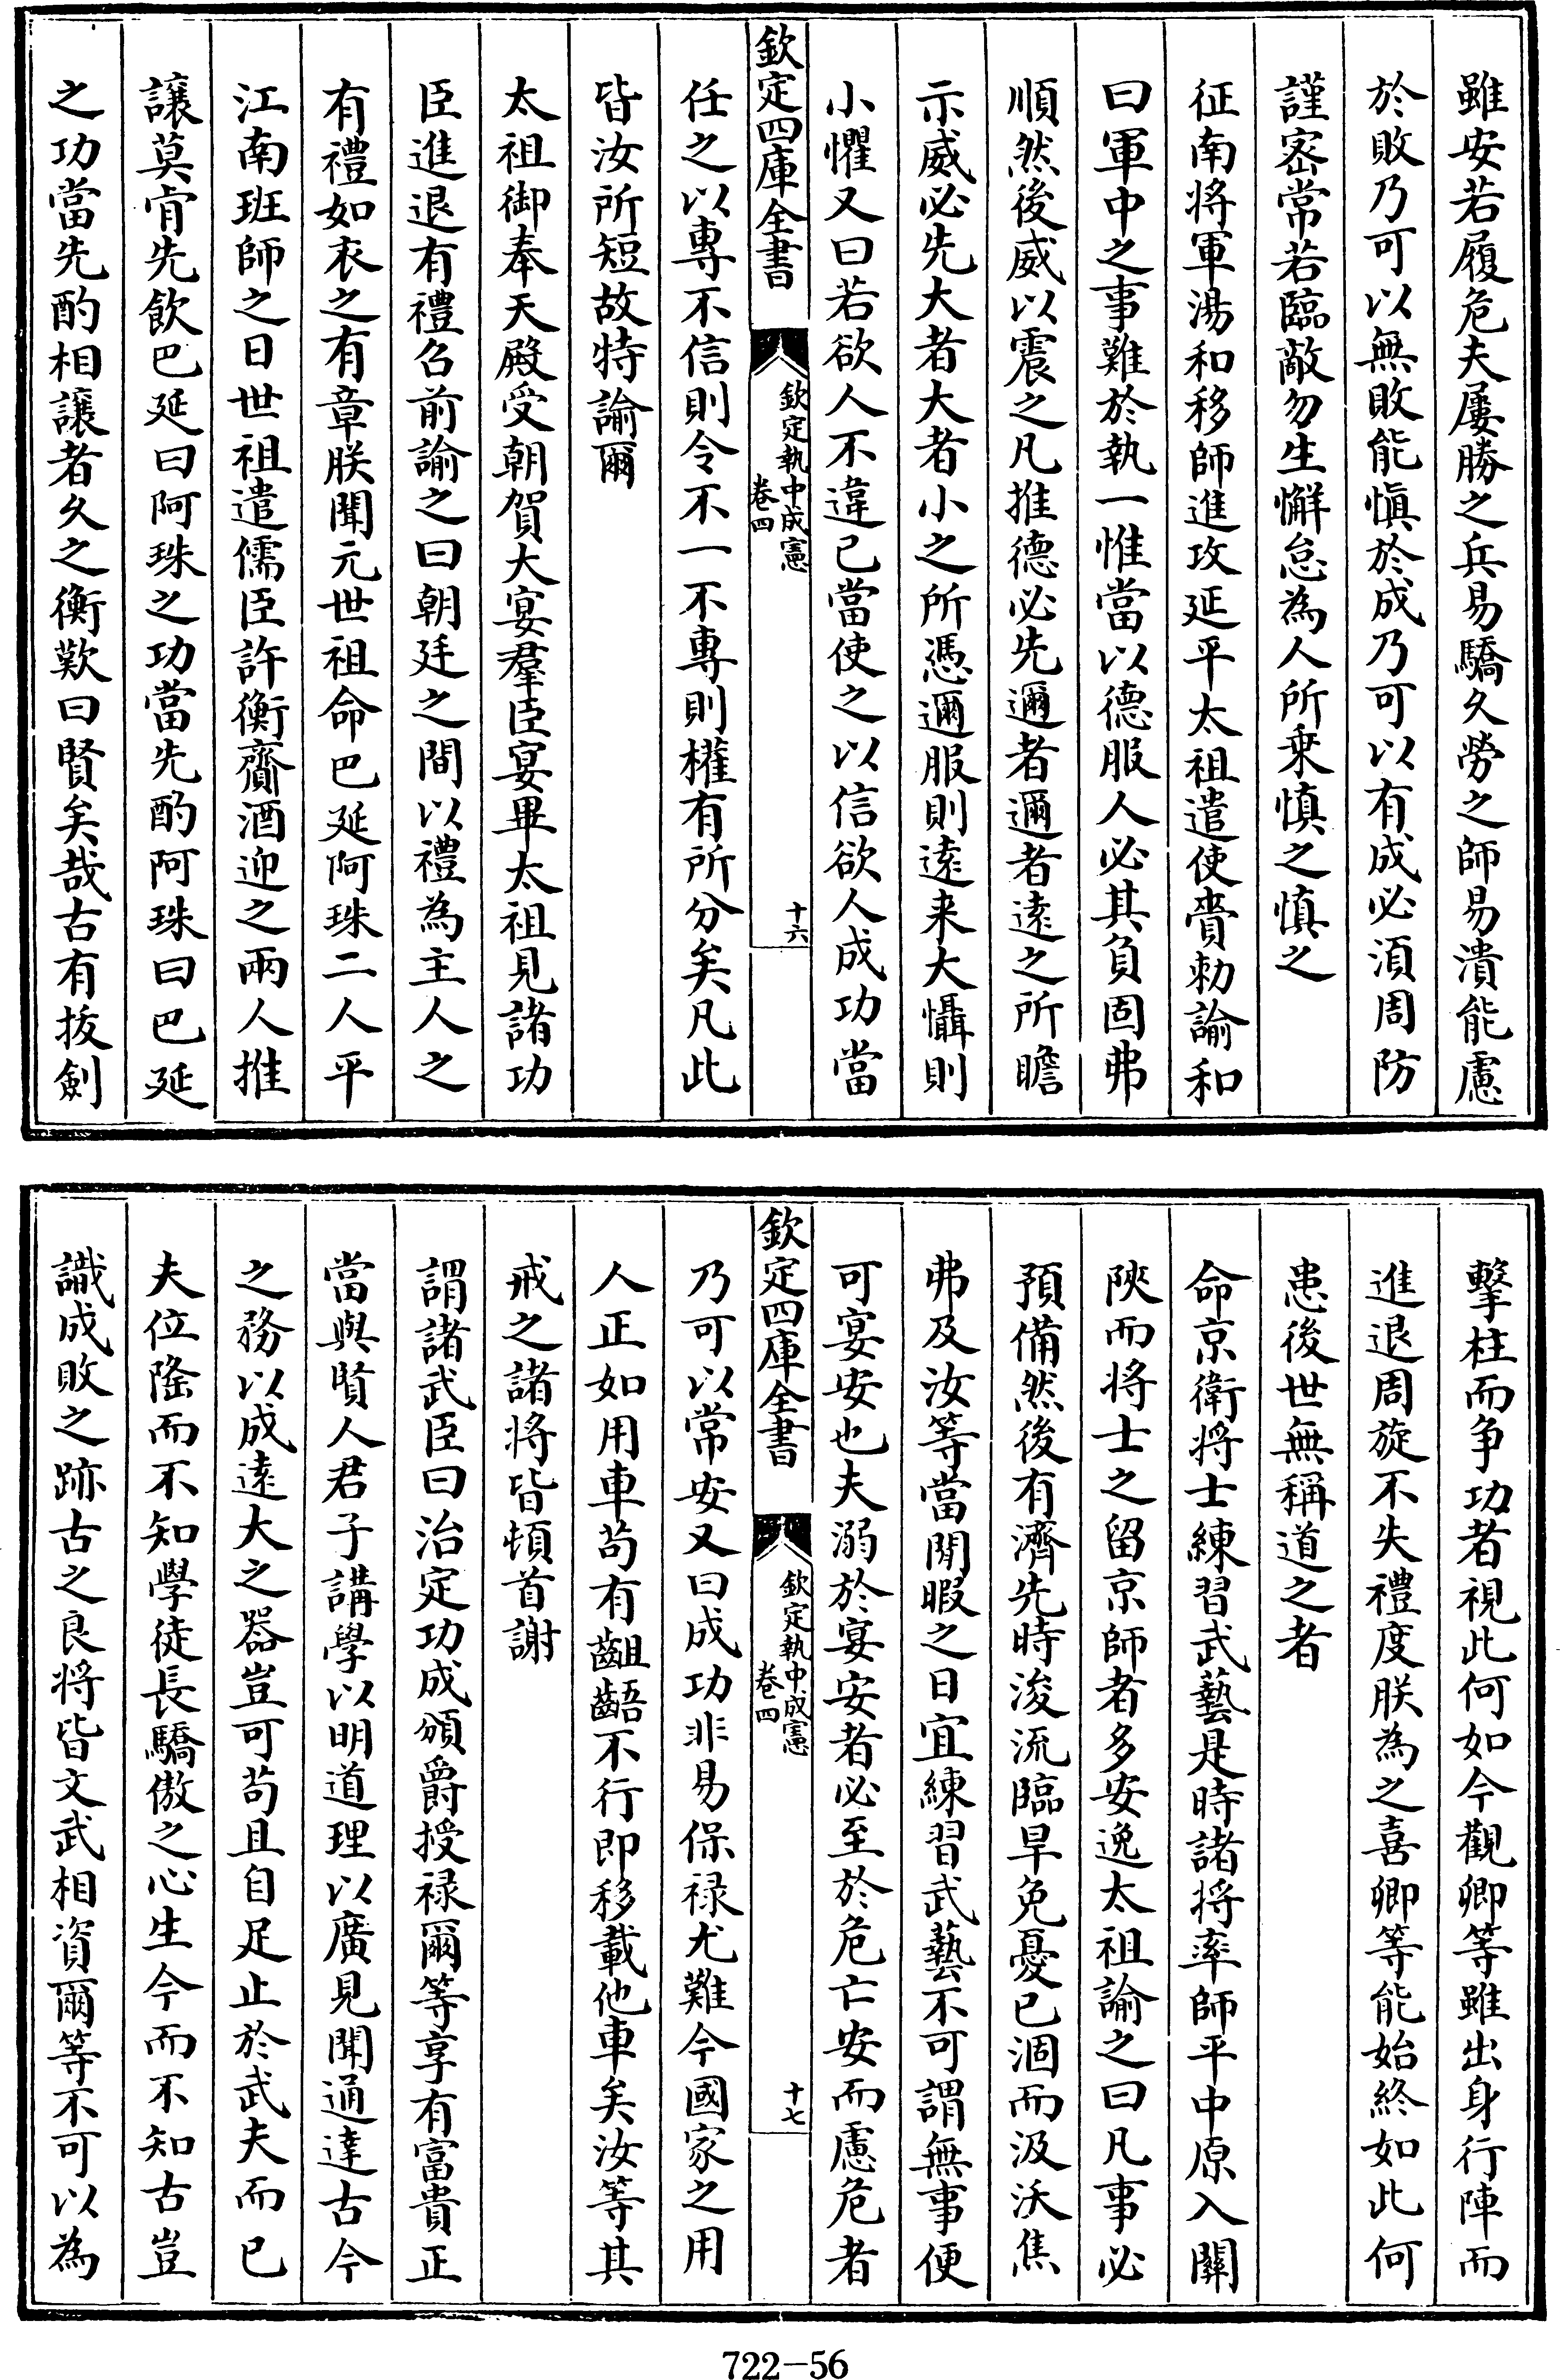 雖安若履危夫屢勝之兵易驕久勞之師易潰能慮
於敗乃可以無敗能慎於成乃可以有成必湏周防
謹宻常若臨敵勿生懈怠為人所乗慎之慎之
征南將軍湯和移師進攻延平太祖遣使賫勅諭和
曰軍中之事難於執一惟當以德服人必其負固弗
順然後威以震之凡推德必先邇者邇者遠之所瞻
示威必先大者大者小之所憑邇服則遠来大懾則
小懼又曰若欲人不違己當使之以信欲人成功當
任之以專不信則令不一不專則權有所分矣凡此
皆汝所短故特諭爾
太祖御奉天殿受朝賀大宴羣臣宴畢太祖見諸功
臣進退有禮召前諭之曰朝廷之間以禮為主人之
有禮如衣之有章朕聞元世祖命巴延阿珠二人平
江南班師之日世祖遣儒臣許衡齎酒迎之兩人推
讓莫肯先飲巴延曰阿珠之功當先酌阿珠曰巴延
之功當先酌相讓者久之衡歎曰賢矣哉古有拔劍
欽定四庫全書
欽定執中成憲
卷四
十六
擊柱而爭功者視此何如今觀卿等雖出身行陣而
進退周旋不失禮度朕為之喜卿等能始終如此何
患後世無稱道之者
命京衛將士練習武藝是時諸將率師平中原入關
陜而將士之留京師者多安逸太祖諭之曰凡事必
預備然後有濟先時浚流臨旱免憂已涸而汲沃焦
弗及汝等當閒暇之日宜練習武藝不可謂無事便
可宴安也夫溺於宴安者必至於危亡安而慮危者
乃可以常安又曰成功非易保禄尤難今國家之用
人正如用車苟有齟齬不行即移載他車矣汝等其
戒之諸將皆頓首謝
謂諸武臣曰治定功成頒爵授禄爾等享有富貴正
當與賢人君子講學以明道理以廣見聞通達古今
之務以成遠大之器豈可苟且自足止於武夫而已
夫位隆而不知學徒長驕傲之心生今而不知古豈
識成敗之跡古之良將皆文武相資爾等不可以為
欽定四庫全書
欽定執中成憲
卷四
十七
722-56